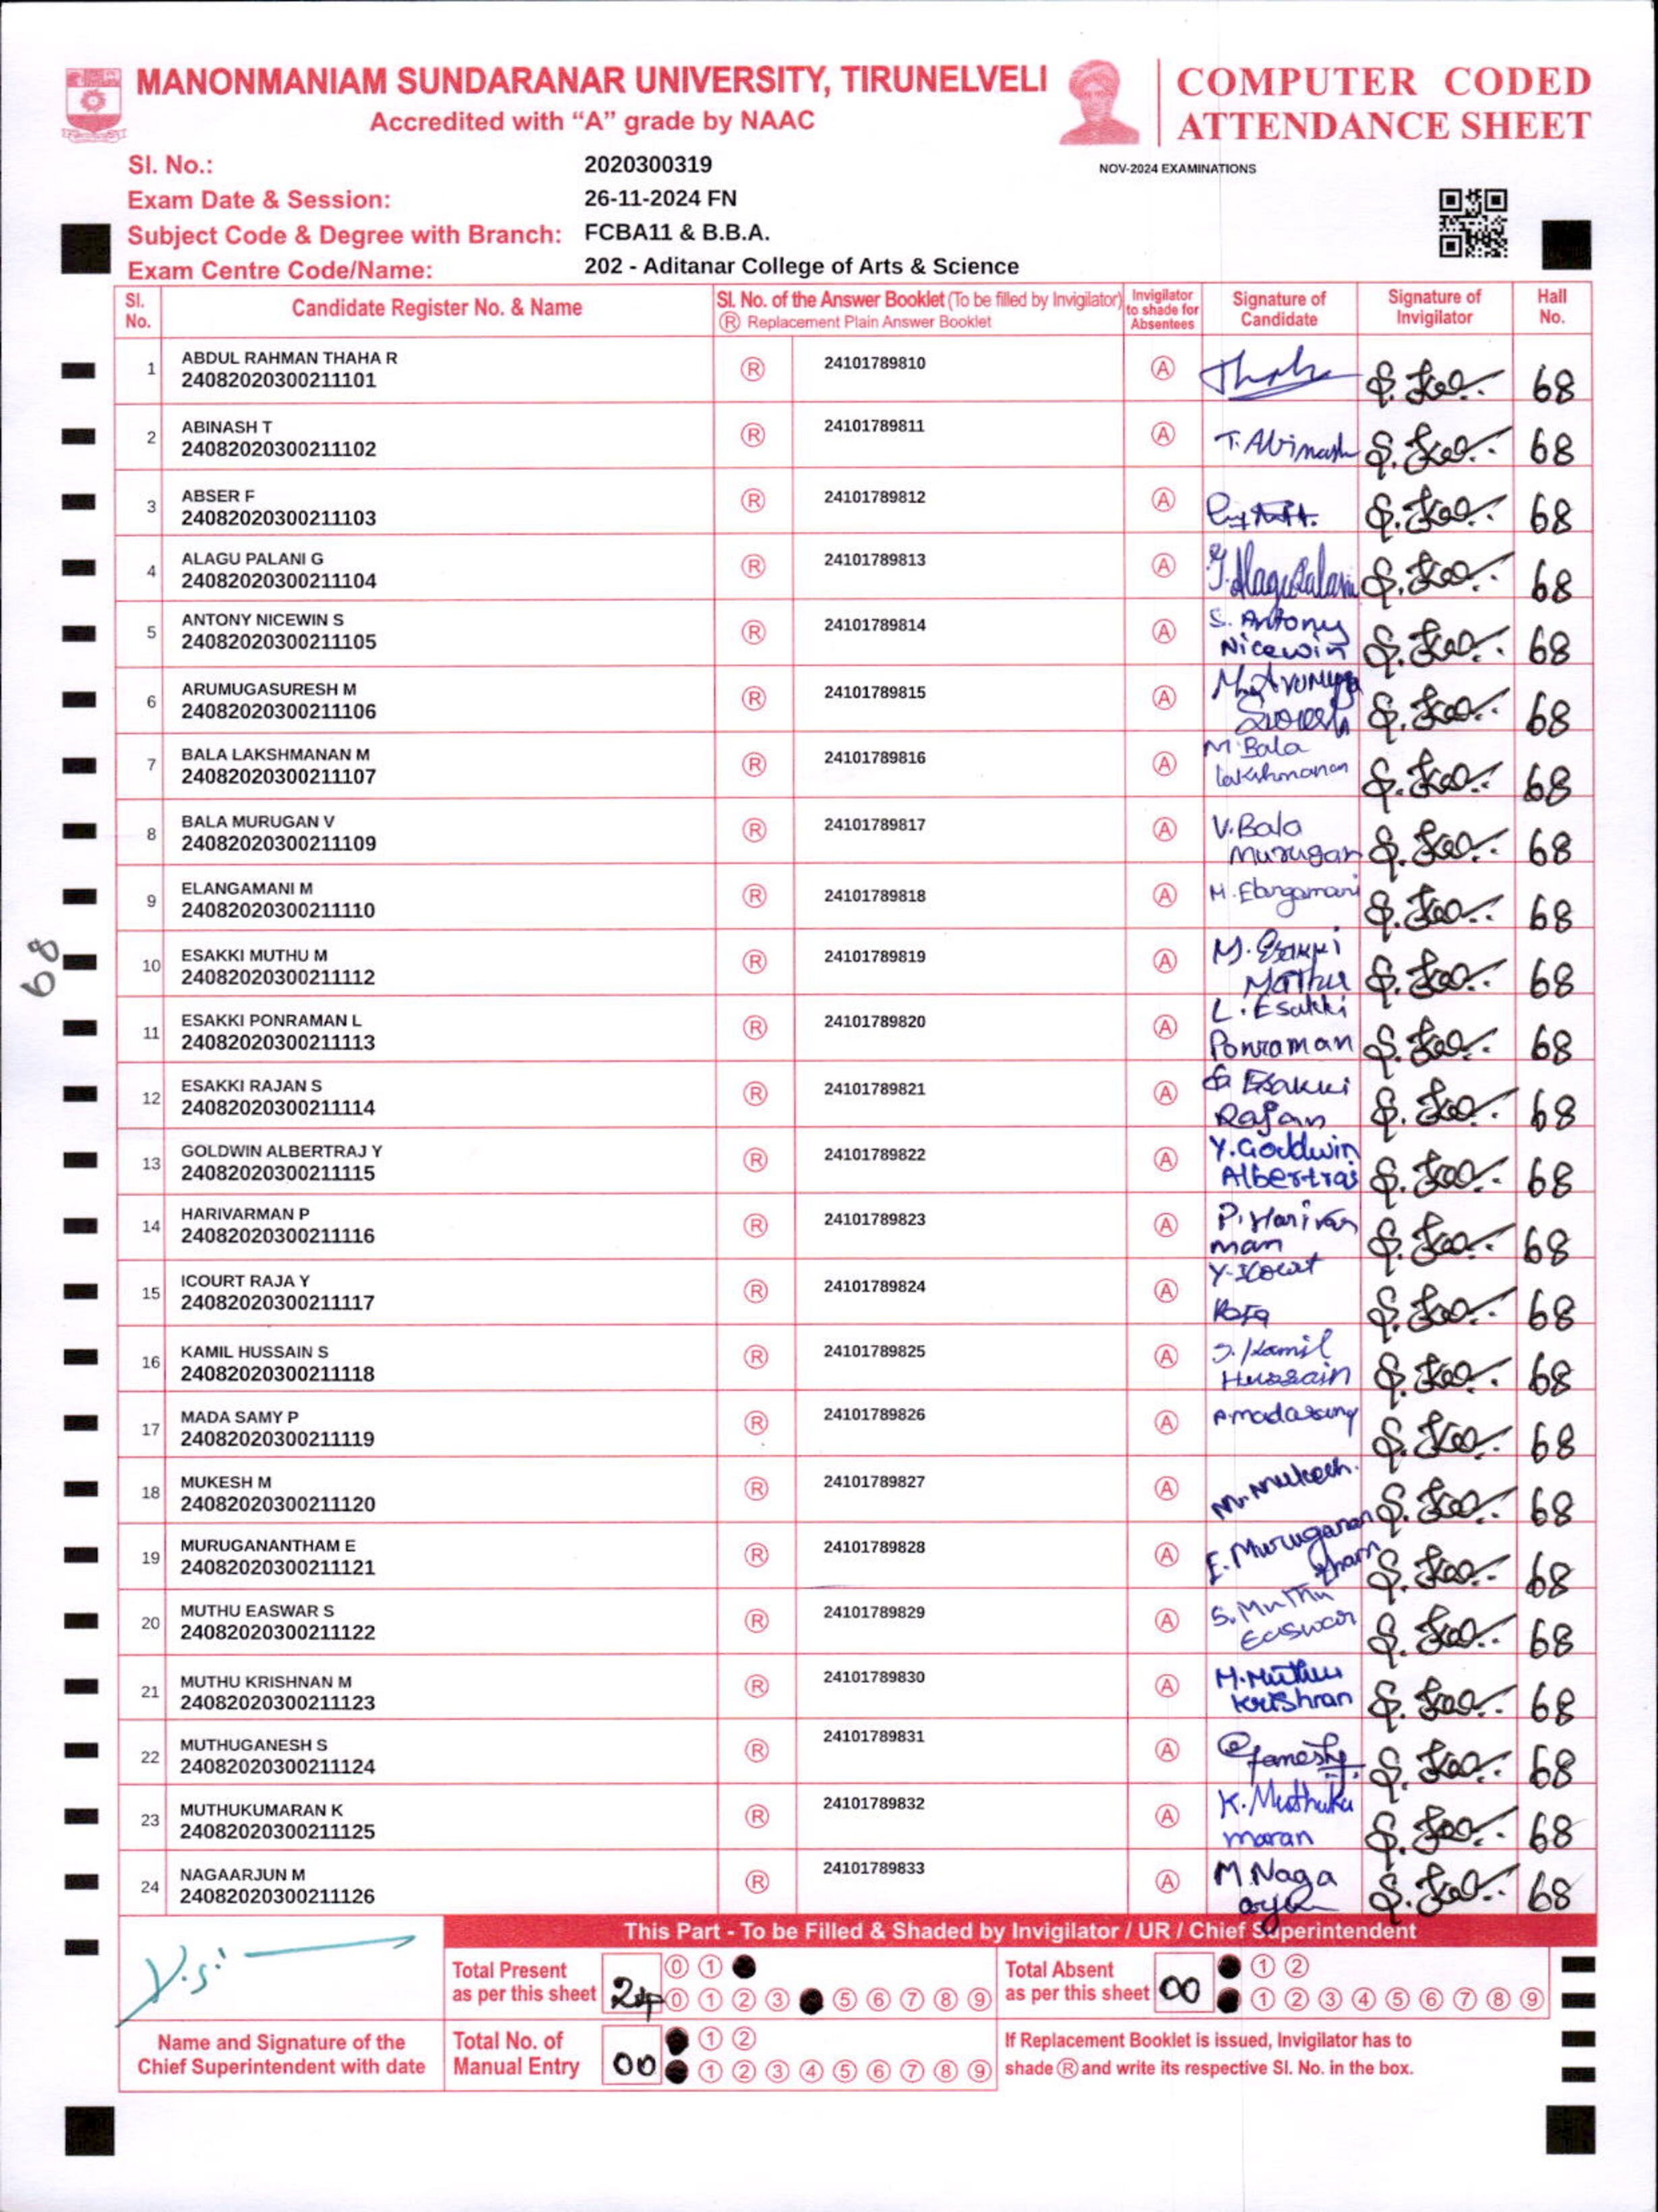 MANONMANIAM SUNDARANAR UNIVERSITY, TIRUNELVELI
Accredited with “A” grade by NAAC
COMPUTER CODED
ATTENDANCE SHEET
Sl. No.: 2020300319
NOV-2024 EXAMINATIONS
Exam Date & Session: 26-11-2024 FN
Subject Code & Degree with Branch: FCBA11 & B.B.A.
Exam Centre Code/Name: 202 - Aditanar College of Arts & Science
Sl. No. Candidate Register No. & Name Sl. No. of the Answer Booklet (To be filled by Invigilator) Ⓡ Replacement Plain Answer Booklet Invigilator to shade for Absentees Signature of Candidate Signature of Invigilator Hall No.
1 ABDUL RAHMAN THAHA R Ⓡ 24101789810 Ⓐ Thaha 68
24082020300211101
2 ABINASH T Ⓡ 24101789811 Ⓐ T. Abinash 68
24082020300211102
3 ABSER F Ⓡ 24101789812 Ⓐ 68
24082020300211103
4 ALAGU PALANI G Ⓡ 24101789813 Ⓐ G. Alagupalani 68
24082020300211104
5 ANTONY NICEWIN S Ⓡ 24101789814 Ⓐ S. Antony Nicewin 68
24082020300211105
6 ARUMUGASURESH M Ⓡ 24101789815 Ⓐ M. Arumuga Suresh 68
24082020300211106
7 BALA LAKSHMANAN M Ⓡ 24101789816 Ⓐ M. Bala lakshmanan 68
24082020300211107
8 BALA MURUGAN V Ⓡ 24101789817 Ⓐ V. Bala Murugan 68
24082020300211109
9 ELANGAMANI M Ⓡ 24101789818 Ⓐ M. Elangamani 68
24082020300211110
68
10 ESAKKI MUTHU M Ⓡ 24101789819 Ⓐ M. Esakki Muthu 68
24082020300211112
11 ESAKKI PONRAMAN L Ⓡ 24101789820 Ⓐ L. Esakki Ponraman 68
24082020300211113
12 ESAKKI RAJAN S Ⓡ 24101789821 Ⓐ Esakki Rajan 68
24082020300211114
13 GOLDWIN ALBERTRAJ Y Ⓡ 24101789822 Ⓐ Y. Goldwin Albertraj 68
24082020300211115
14 HARIVARMAN P Ⓡ 24101789823 Ⓐ P. Harivar man 68
24082020300211116
15 ICOURT RAJA Y Ⓡ 24101789824 Ⓐ Y. Icourt Raja 68
24082020300211117
16 KAMIL HUSSAIN S Ⓡ 24101789825 Ⓐ S. Kamil Hussain 68
24082020300211118
17 MADA SAMY P Ⓡ 24101789826 Ⓐ P. madasamy 68
24082020300211119
18 MUKESH M Ⓡ 24101789827 Ⓐ M. Mukesh. 68
24082020300211120
19 MURUGANANTHAM E Ⓡ 24101789828 Ⓐ E. Muruganan tham 68
24082020300211121
20 MUTHU EASWAR S Ⓡ 24101789829 Ⓐ S. Muthu Easwar 68
24082020300211122
21 MUTHU KRISHNAN M Ⓡ 24101789830 Ⓐ M. Muthu Krishnan 68
24082020300211123
22 MUTHUGANESH S Ⓡ 24101789831 Ⓐ 68
24082020300211124
23 MUTHUKUMARAN K Ⓡ 24101789832 Ⓐ K. Muthuku maran 68
24082020300211125
24 NAGAARJUN M Ⓡ 24101789833 Ⓐ M. Naga arjun 68
24082020300211126
This Part - To be Filled & Shaded by Invigilator / UR / Chief Superintendent
Total Present as per this sheet 24 ⓪ ①
⓪ ① ② ③ ⑤ ⑥ ⑦ ⑧ ⑨
Total Absent as per this sheet 00 ① ②
① ② ③ ④ ⑤ ⑥ ⑦ ⑧ ⑨
Name and Signature of the
Chief Superintendent with date
Total No. of Manual Entry 00 ① ②
① ② ③ ④ ⑤ ⑥ ⑦ ⑧ ⑨
If Replacement Booklet is issued, Invigilator has to
shade Ⓡ and write its respective Sl. No. in the box.